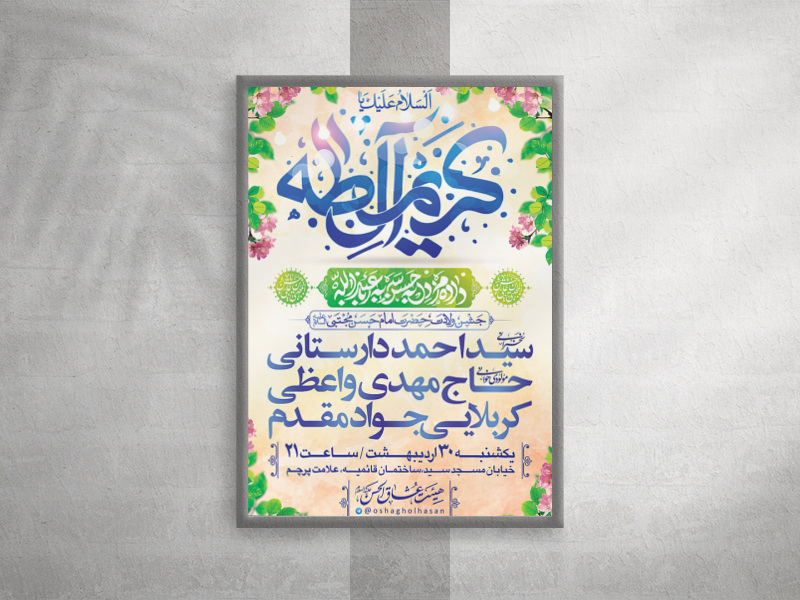 السلام علیک یا
کریم آل طه
جشن ولادت حضرت امام حسن مجتبی
سخنرانی
سید احمد دارستانی
مولودی خوانی
حاج مهدی واعظی
کربلایی جواد مقدم
یکشنبه ۳۰ اردیبهشت / ساعت ۲۱
خیابان مسجد سید، ساختمان قائمیه، علامت پرچم
هیئت عشاق الحسن
@oshagholhasan